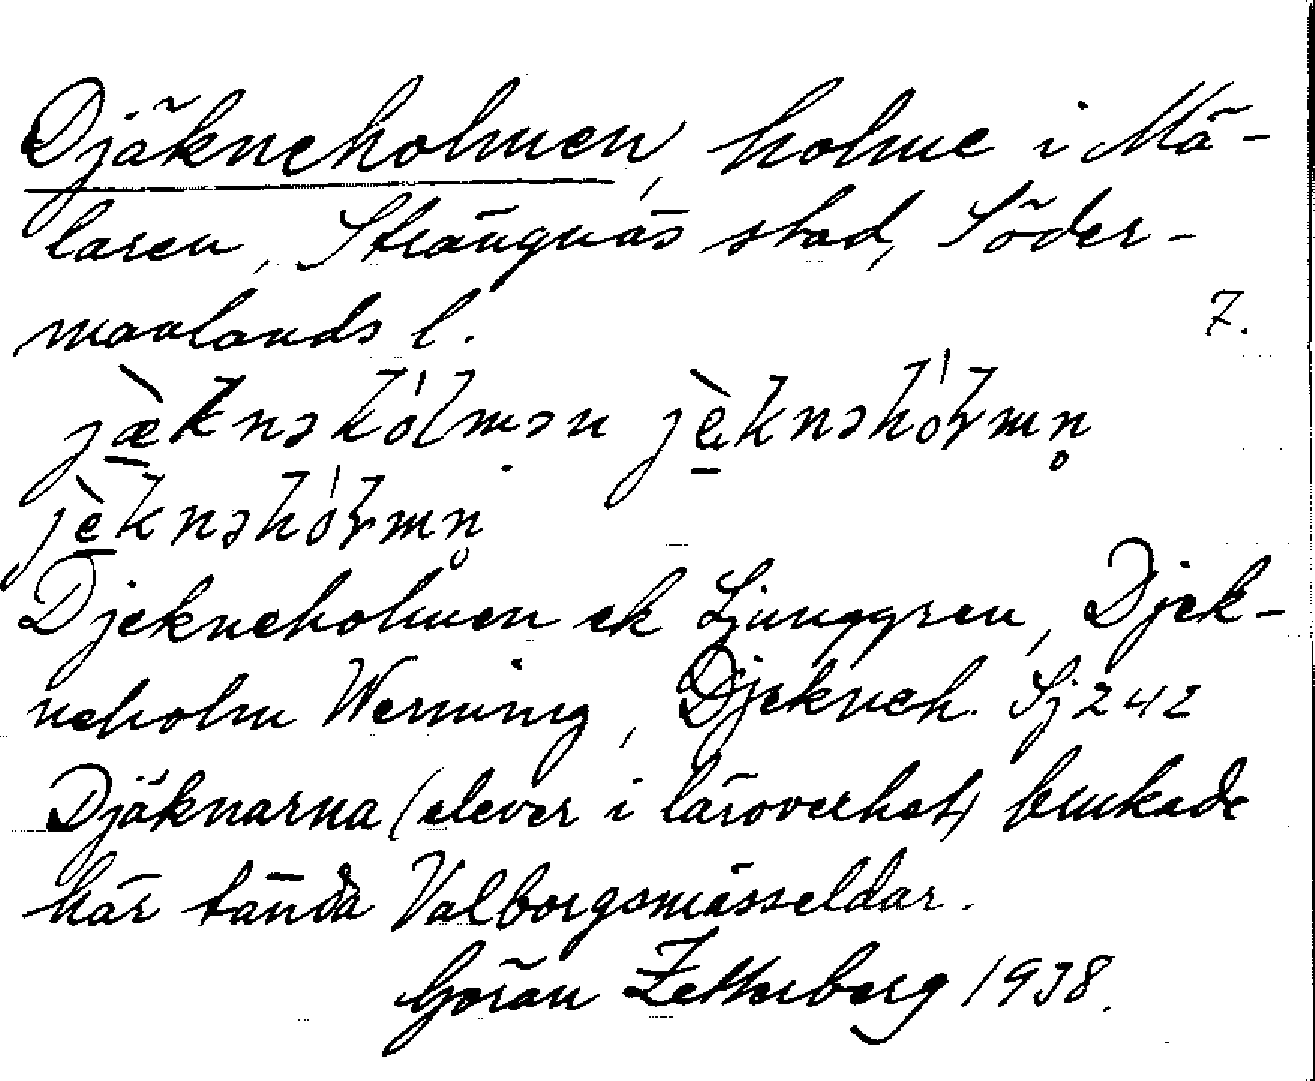 Djäkneholmen, holme i Mä-
laren, Strängnäs stad, Söder-
manlands l.
7.
jæ̀knəhólmən jèknəhóɽmn̥
jèknəhóɽmn̥
Djekneholmen ek Ljunggren, Djek-
neholm Werming, Djekneh. Sj 242
Djäknarna (elever i läroverket) brukade
här tända Valborgsmässeldar.
Göran Zetterberg 1938.